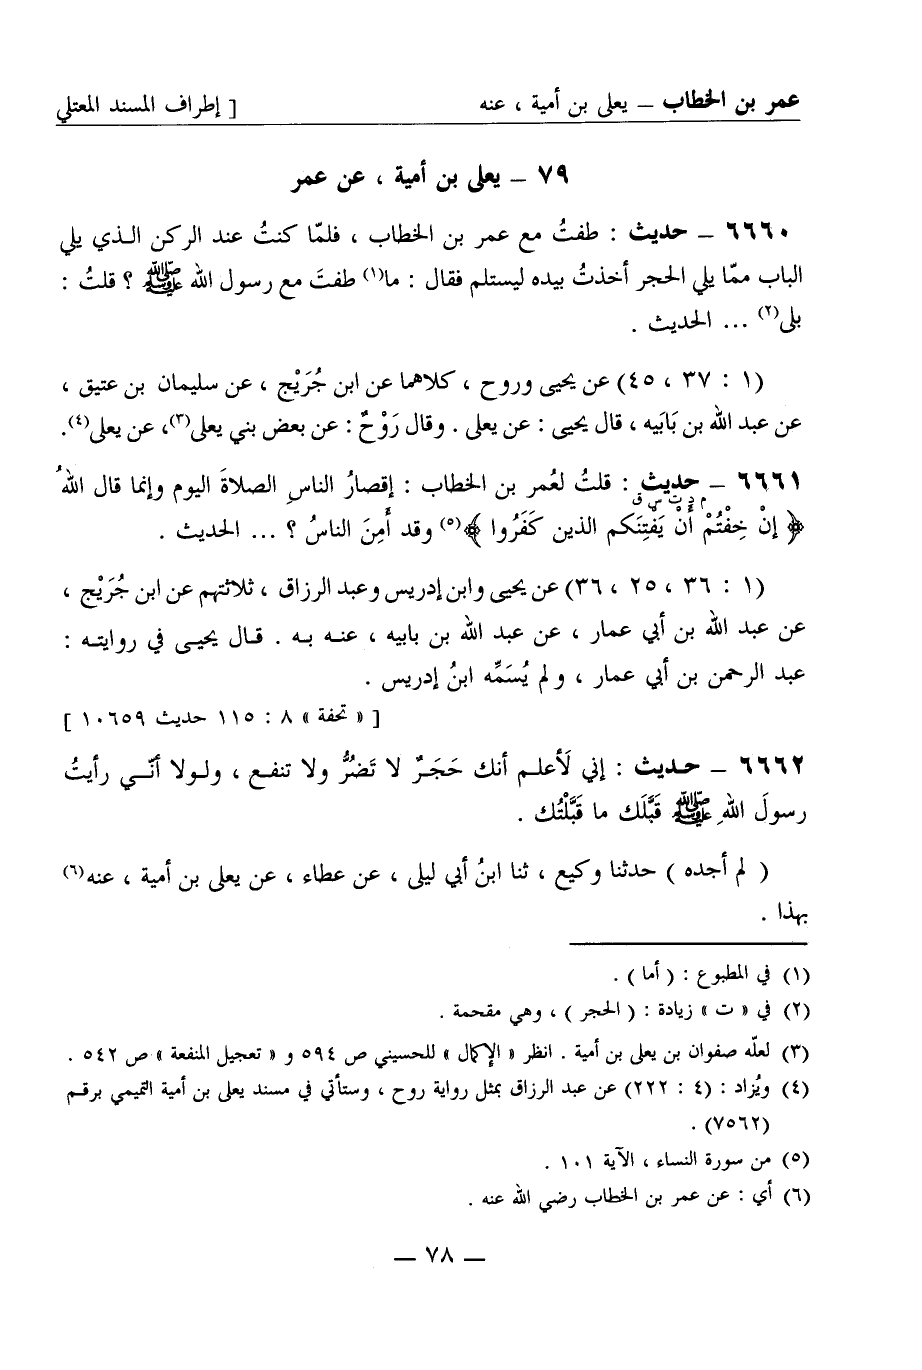 عمر بن الخطاب ــ يعلى بن أمية ، عنه [ إطراف المسند المعتلي
٧٩ ــ يعلى بن أمية ، عن عمر
٦٦٦٠ ــ حديث : طفتُ مع عمر بن الخطاب ، فلمّا كنتُ عند الركن الـذي يلي
الباب ممّا يلي الحجر أخذتُ بيده ليستلم فقال : ما(١) طفتَ مع رسول الله ﷺ ؟ قلتُ :
بلى(٢) ... الحديث .
(١ : ٣٧ ، ٤٥) عن يحيى وروح ، كلاهما عن ابن جُرَيْج ، عن سليمان بن عتيق ،
عن عبد الله بن بَابَيه ، قال يحيى : عن يعلى . وقال رَوْحٌ : عن بعض بني يعلى(٣)، عن يعلى(٤).
٦٦٦١ ــ حديث : قلتُ لعُمر بن الخطاب : إقصارُ الناسِ الصلاةَ اليوم وإنما قال اللهُ
م د ت س ق
﴿ إنْ خِفْتُمْ أَنْ يَفْتِنَكم الذين كَفَرُوا ﴾(٥) وقد أَمِنَ الناسُ ؟ ... الحديث .
(١ : ٣٦ ، ٢٥ ، ٣٦) عن يحيى وابن إدريس وعبد الرزاق ، ثلاثتهم عن ابن جُرَيْج ،
عن عبد الله بن أبي عمار ، عن عبد الله بن بابيه ، عنـه بـه . قـال يحيـى في روايتـه :
عبد الرحمن بن أبي عمار ، ولم يُسَمِّه ابنُ إدريس .
[ « تحفة » ٨ : ١١٥ حديث ١٠٦٥٩ ]
٦٦٦٢ ــ حـديث : إني لَأعلـم أنك حَجَـرٌ لا تَضُرُّ ولا تنفـع ، ولـولا أنّـي رأيتُ
رسولَ اللهِ ﷺ قَبَّلَك ما قَبَّلْتُك .
( لم أجده ) حدثنا وكيع ، ثنا ابنُ أبي ليلى ، عن عطاء ، عن يعلى بن أمية ، عنه(٦)
بهذا .
(١) في المطبوع : ( أما ) .
(٢) في « ت » زيادة : ( الحجر ) ، وهي مقحمة .
(٣) لعلّه صفوان بن يعلى بن أمية . انظر « الإكمال » للحسيني ص ٥٩٤ و « تعجيل المنفعة » ص ٥٤٢ .
(٤) ويُزاد : (٤ : ٢٢٢) عن عبد الرزاق بمثل رواية روح ، وستأتي في مسند يعلى بن أمية التميمي برقـم
(٧٥٦٢) .
(٥) من سورة النساء ، الآية ١٠١ .
(٦) أي : عن عمر بن الخطاب رضي الله عنه .
ــ ٧٨ ــ